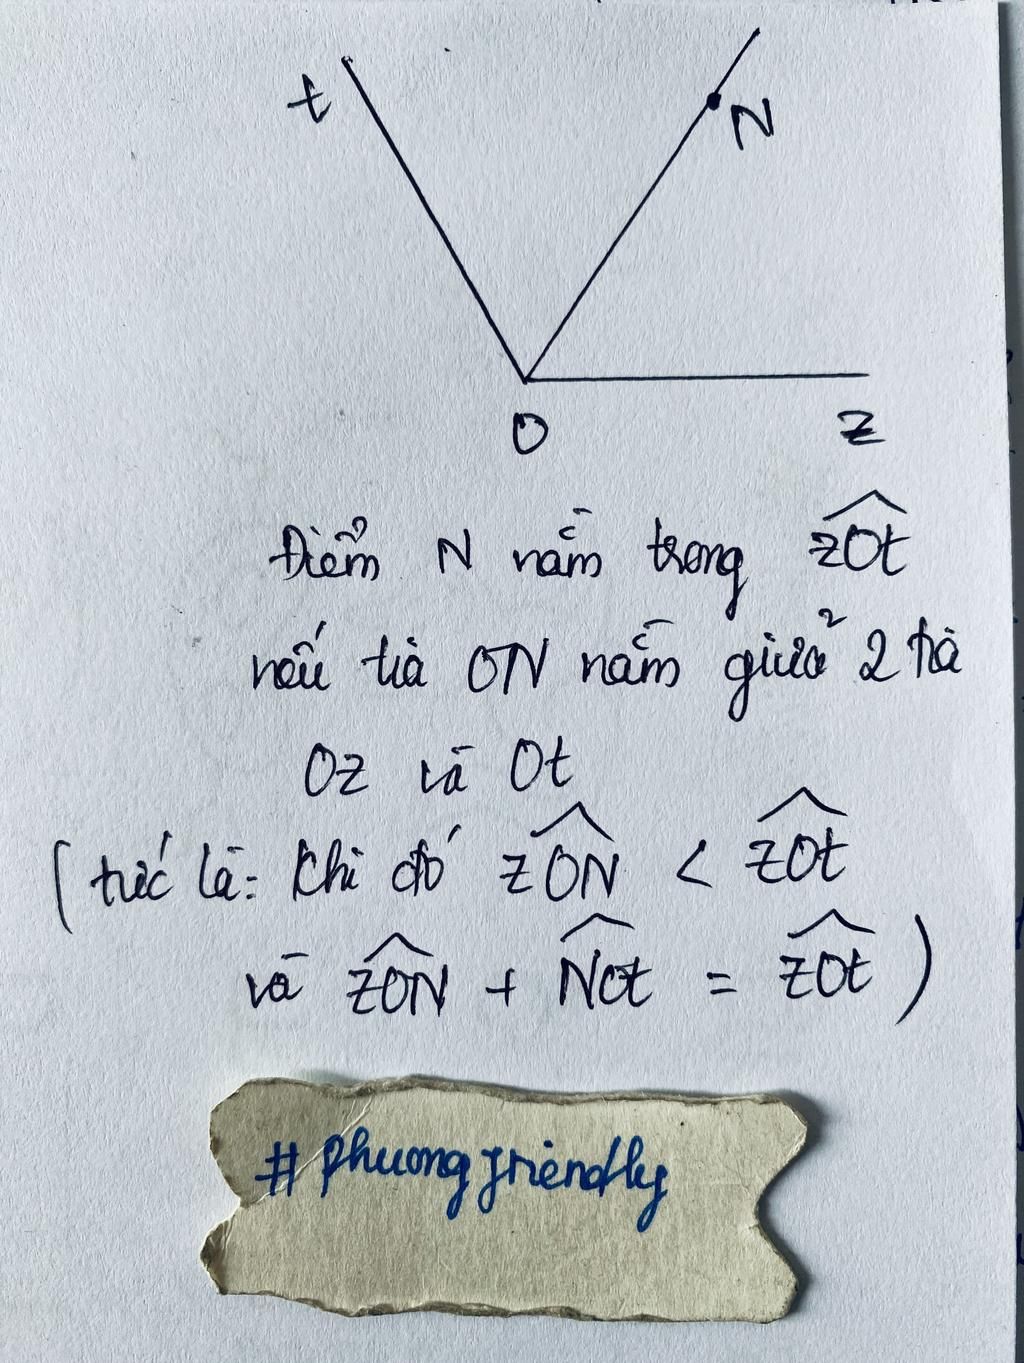 t
N
O
z
Điểm N nằm trong zOt
nếu tia ON nằm giữa 2 tia
Oz và Ot
(tức là: Khi đó zON < zOt
và zON + NOt = zOt)
#phuongfriendly